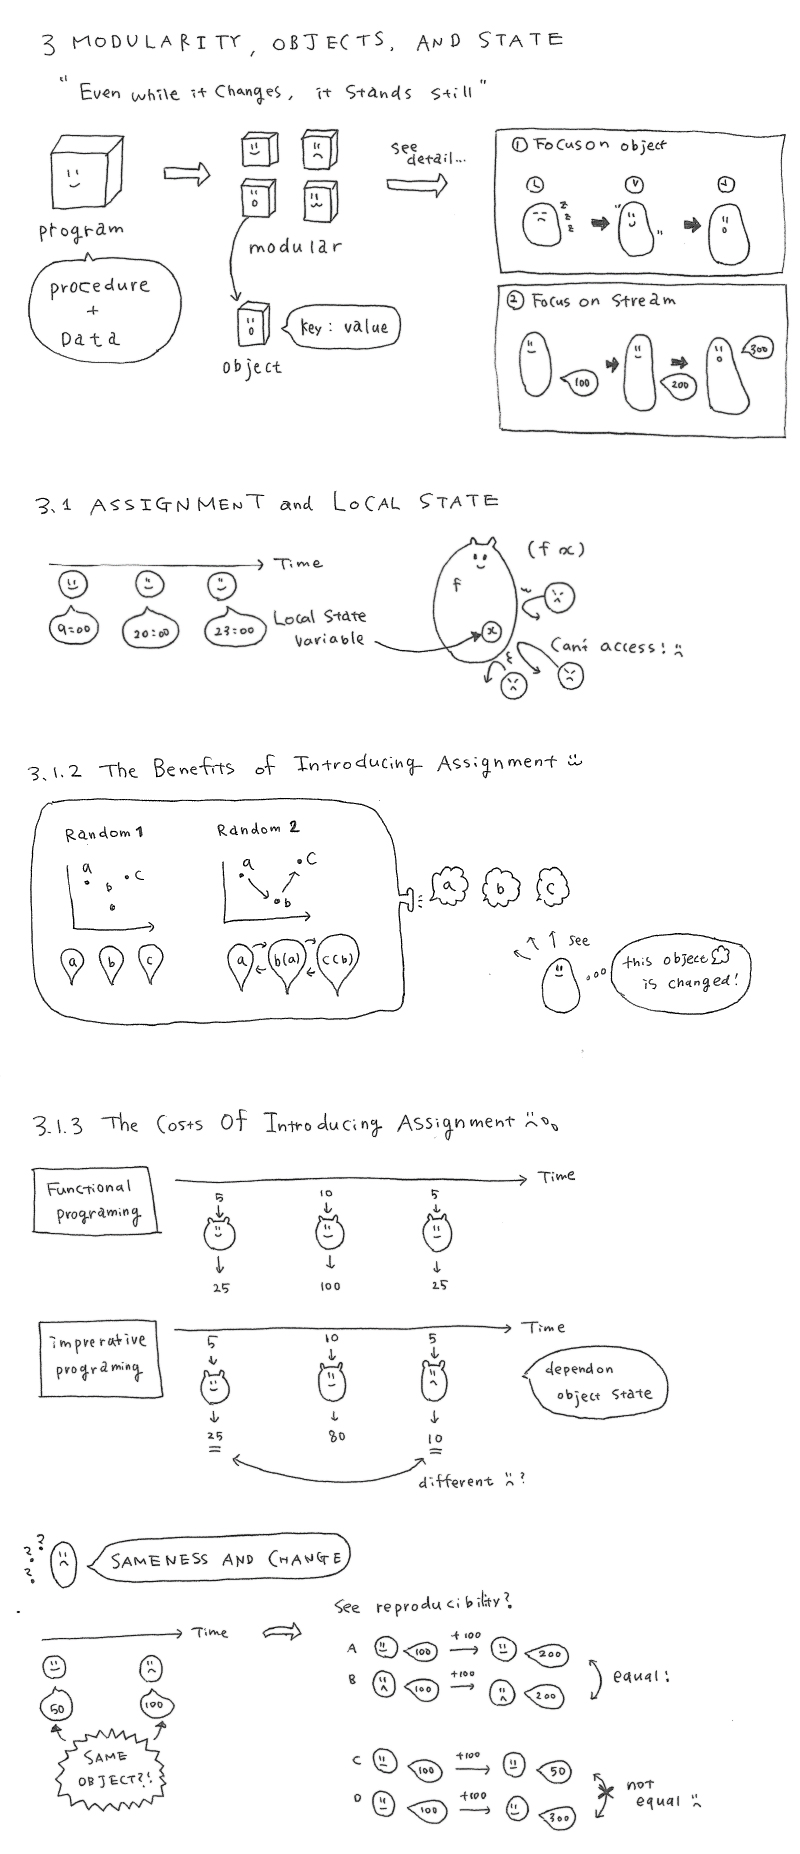 3 MODULARITY, OBJECTS, AND STATE
"Even while it Changes, it Stands Still"
program
procedure
+
Data
modular
object
key: value
See
detail...
① Focus on object
z
z
z
② Focus on Stream
100
200
300
3.1 ASSIGNMENT and LOCAL STATE
Time
9:00
20:00
23:00
Local State
variable
f
x
(f x)
Can't access!
3.1.2 The Benefits of Introducing Assignment
Random 1
a
b
c
a
b
c
Random 2
a
b
c
a
b(a)
c(b)
a
b
c
see
this object
is changed!
3.1.3 The Costs Of Introducing Assignment
Functional
programing
Time
5
10
5
25
100
25
imprerative
programing
Time
5
10
5
25
80
10
depend on
object State
different ?
? ? ? ?
SAMENESS AND CHANGE
Time
50
100
SAME
OBJECT?!
See reproducibility?
A 100 +100 200
B 100 +100 200
equal!
C 100 +100 50
D 100 +100 300
not
equal